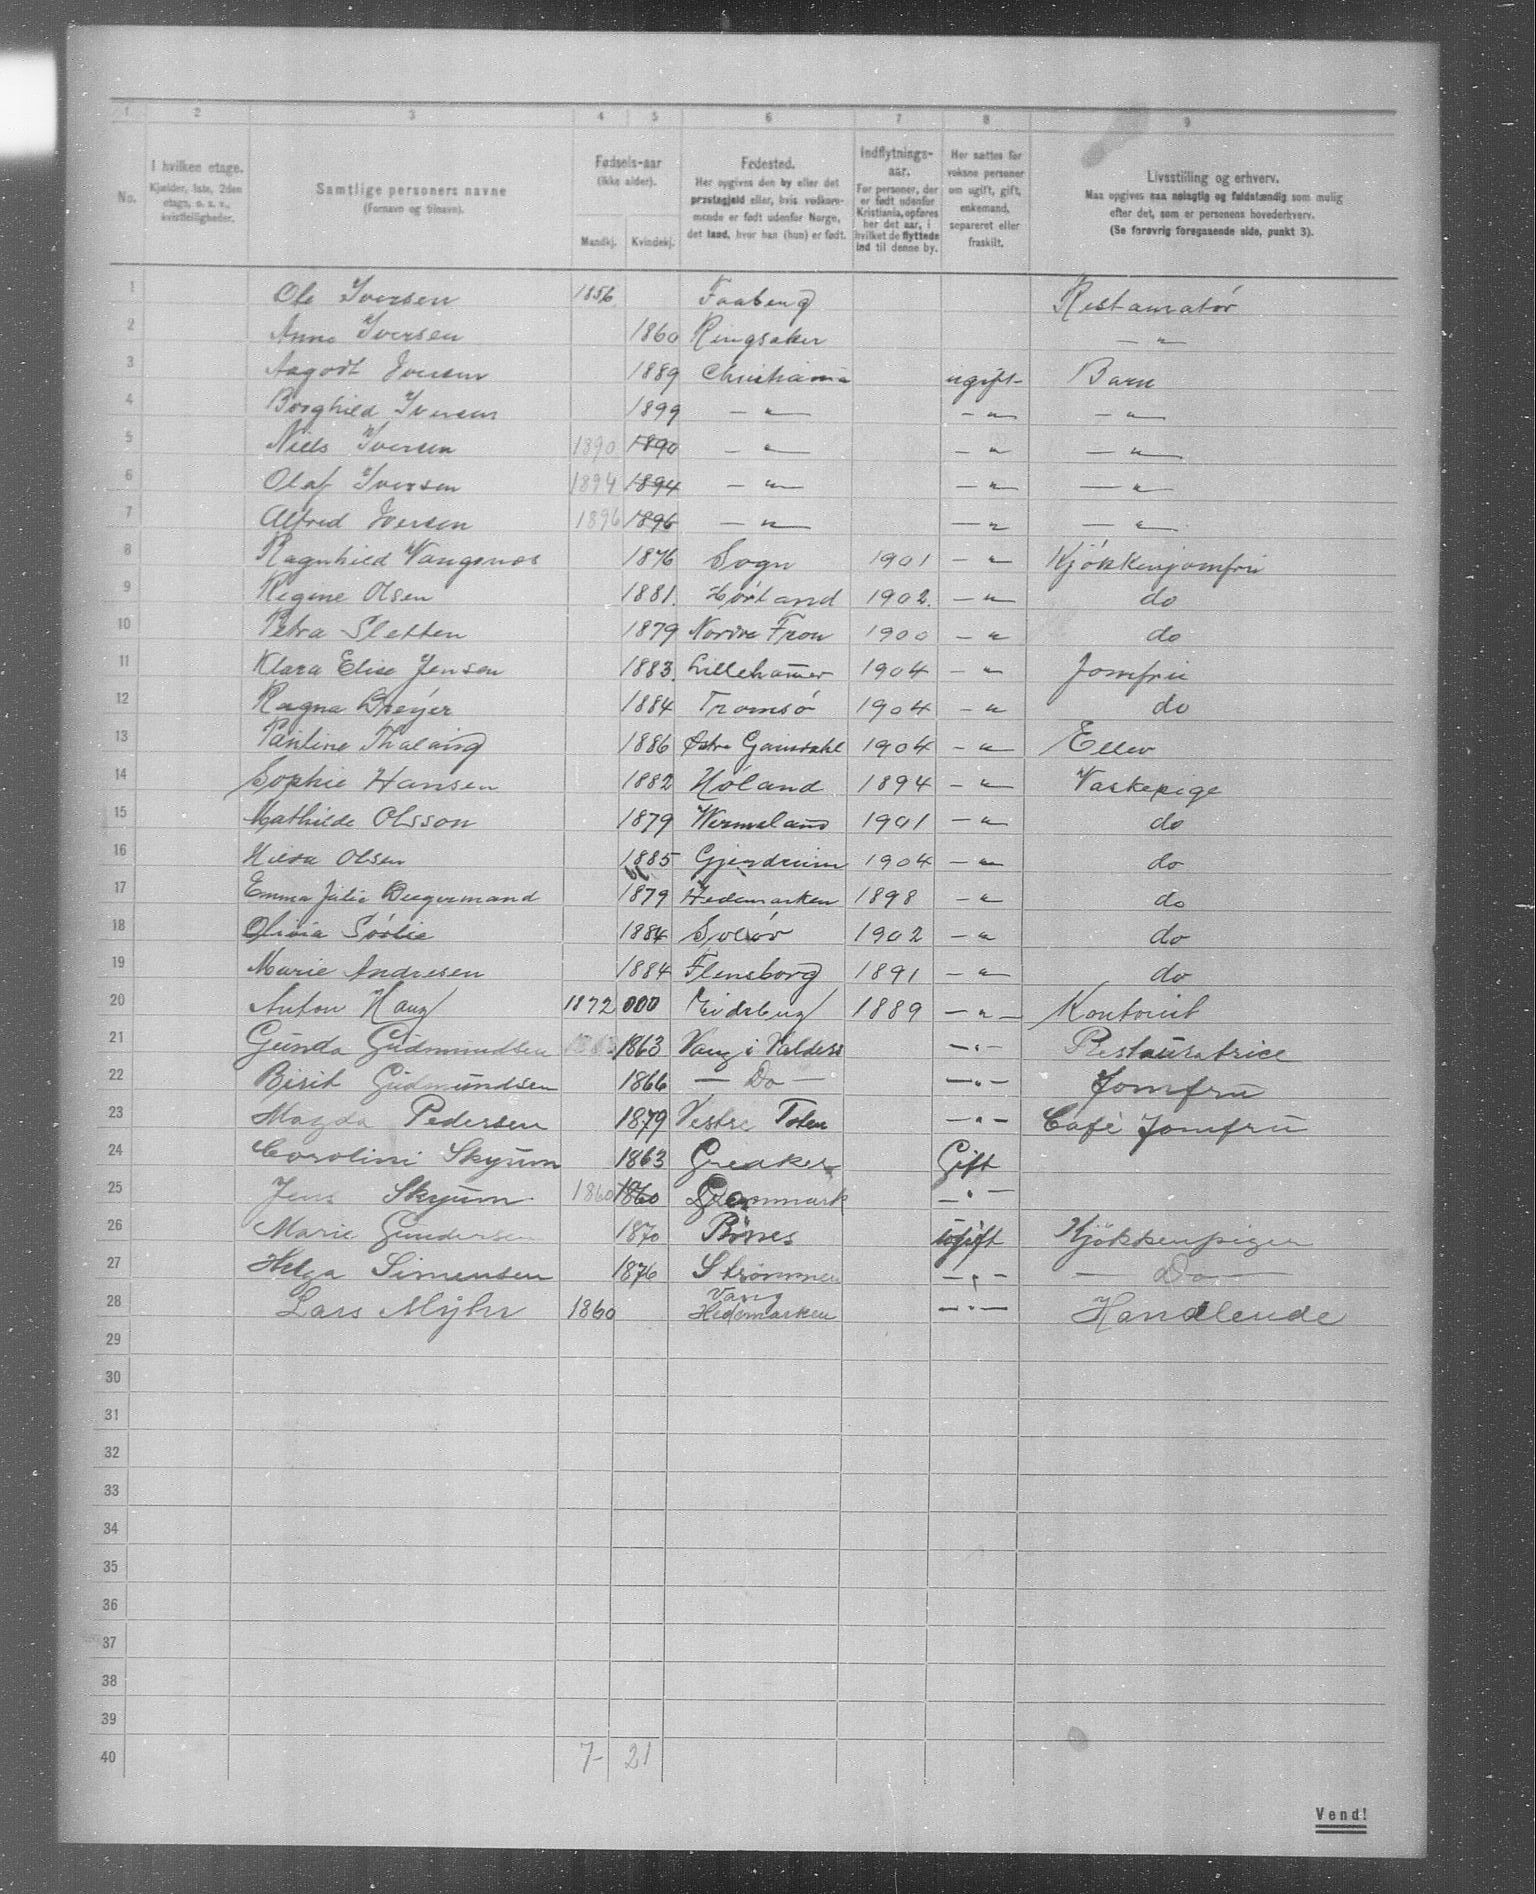 1 2 3 4 5 6 7 8 9
No.
I hvilken etage.
Kjælder, 1ste, 2den
etage, o. s. v.,
kvistleiligheder.
Samtlige personers navne
(Fornavn og tilnavn).
Fødsels-aar
(ikke alder).
Mandkj. Kvindekj.
Fødested.
Her opgives den by eller det
præstegjeld eller, hvis vedkom-
mende er født udenfor Norge,
det land, hvor han (hun) er født.
Indflytnings-
aar.
For personer, der
er født udenfor
Kristiania, opføres
her det aar, i
hvilket de flyttede
ind til denne by.
Her sættes for
voksne personer
om ugift, gift,
enkemand,
separeret eller
fraskilt.
Livsstilling og erhverv.
Maa opgives saa nøiagtig og fuldstændig som mulig
efter det, som er personens hovederhverv.
(Se forøvrig foregaaende side, punkt 3).
1 Ole Iversen 1856 Faaberg Restauratør
2 Anne Iversen 1860 Ringsaker — " —
3 Aagodt Iversen 1889 Christiania ugift Barn
4 Borghild Iversen 1899 — " — — " — — " —
5 Niels Iversen 1890 1890 — " — — " — " —
6 Olaf Iversen 1894 1894 — " — — " — — " —
7 Alfred Iversen 1896 1896 — " — — " — " —
8 Ragnhild Vangsnes 1876 Sogn 1901 — " Kjøkkenjomfru
9 Regine Olsen 1881. 1902. — " — do
10 Petra Sletten 1879 Nordre Fron 1900 — " do
11 Klara Elise Jensen 1883. Lillehamer 1904 — " Jomfru
12 Ragna Dreyer 1884 Tromsø 1904 — " do
13 1886 Østre 1904 — " —
14 Sophie Hansen 1882 Høland 1894 — " — Vaskepige
15 Mathilde Olsson 1879 Wermeland 1901 — " — do
16 Hilda Olsen 1885 Gjerdrum 1904 — " — do
17 Emma Julie 1879 Hedemarken 1898 — " do
18 Olivia Sørlie 1884 Soløv 1902 — " do
19 Marie Andresen 1884 Flensborg 1891 — " — do
20 Anton Haug 1872 000 Eidsberg 1889 — " — Kontorist
21 Gunda Gudmundsen 1863 1863 Vang i Valders — " — Restauratrice
22 Birit Gudmundsen 1866 — Do — — " — Jomfru
23 Magda Pedersen 1879 Vestre Toten — " — Café Jomfru
24 Corolini Skyum 1863 Greaker Gift
25 Jens Skyum 1860 1860 Danmark — " —
26 Marie Gundersen 1870 Ugift Kjøkkenpiger
27 Helga Simensen 1876 Strømmen — " — — Do —
28 Lars Myhr 1860 Vang
Hedemarken — " — Handlende
29
30
31
32
33
34
35
36
37
38
39
40 7- 21
Vend!